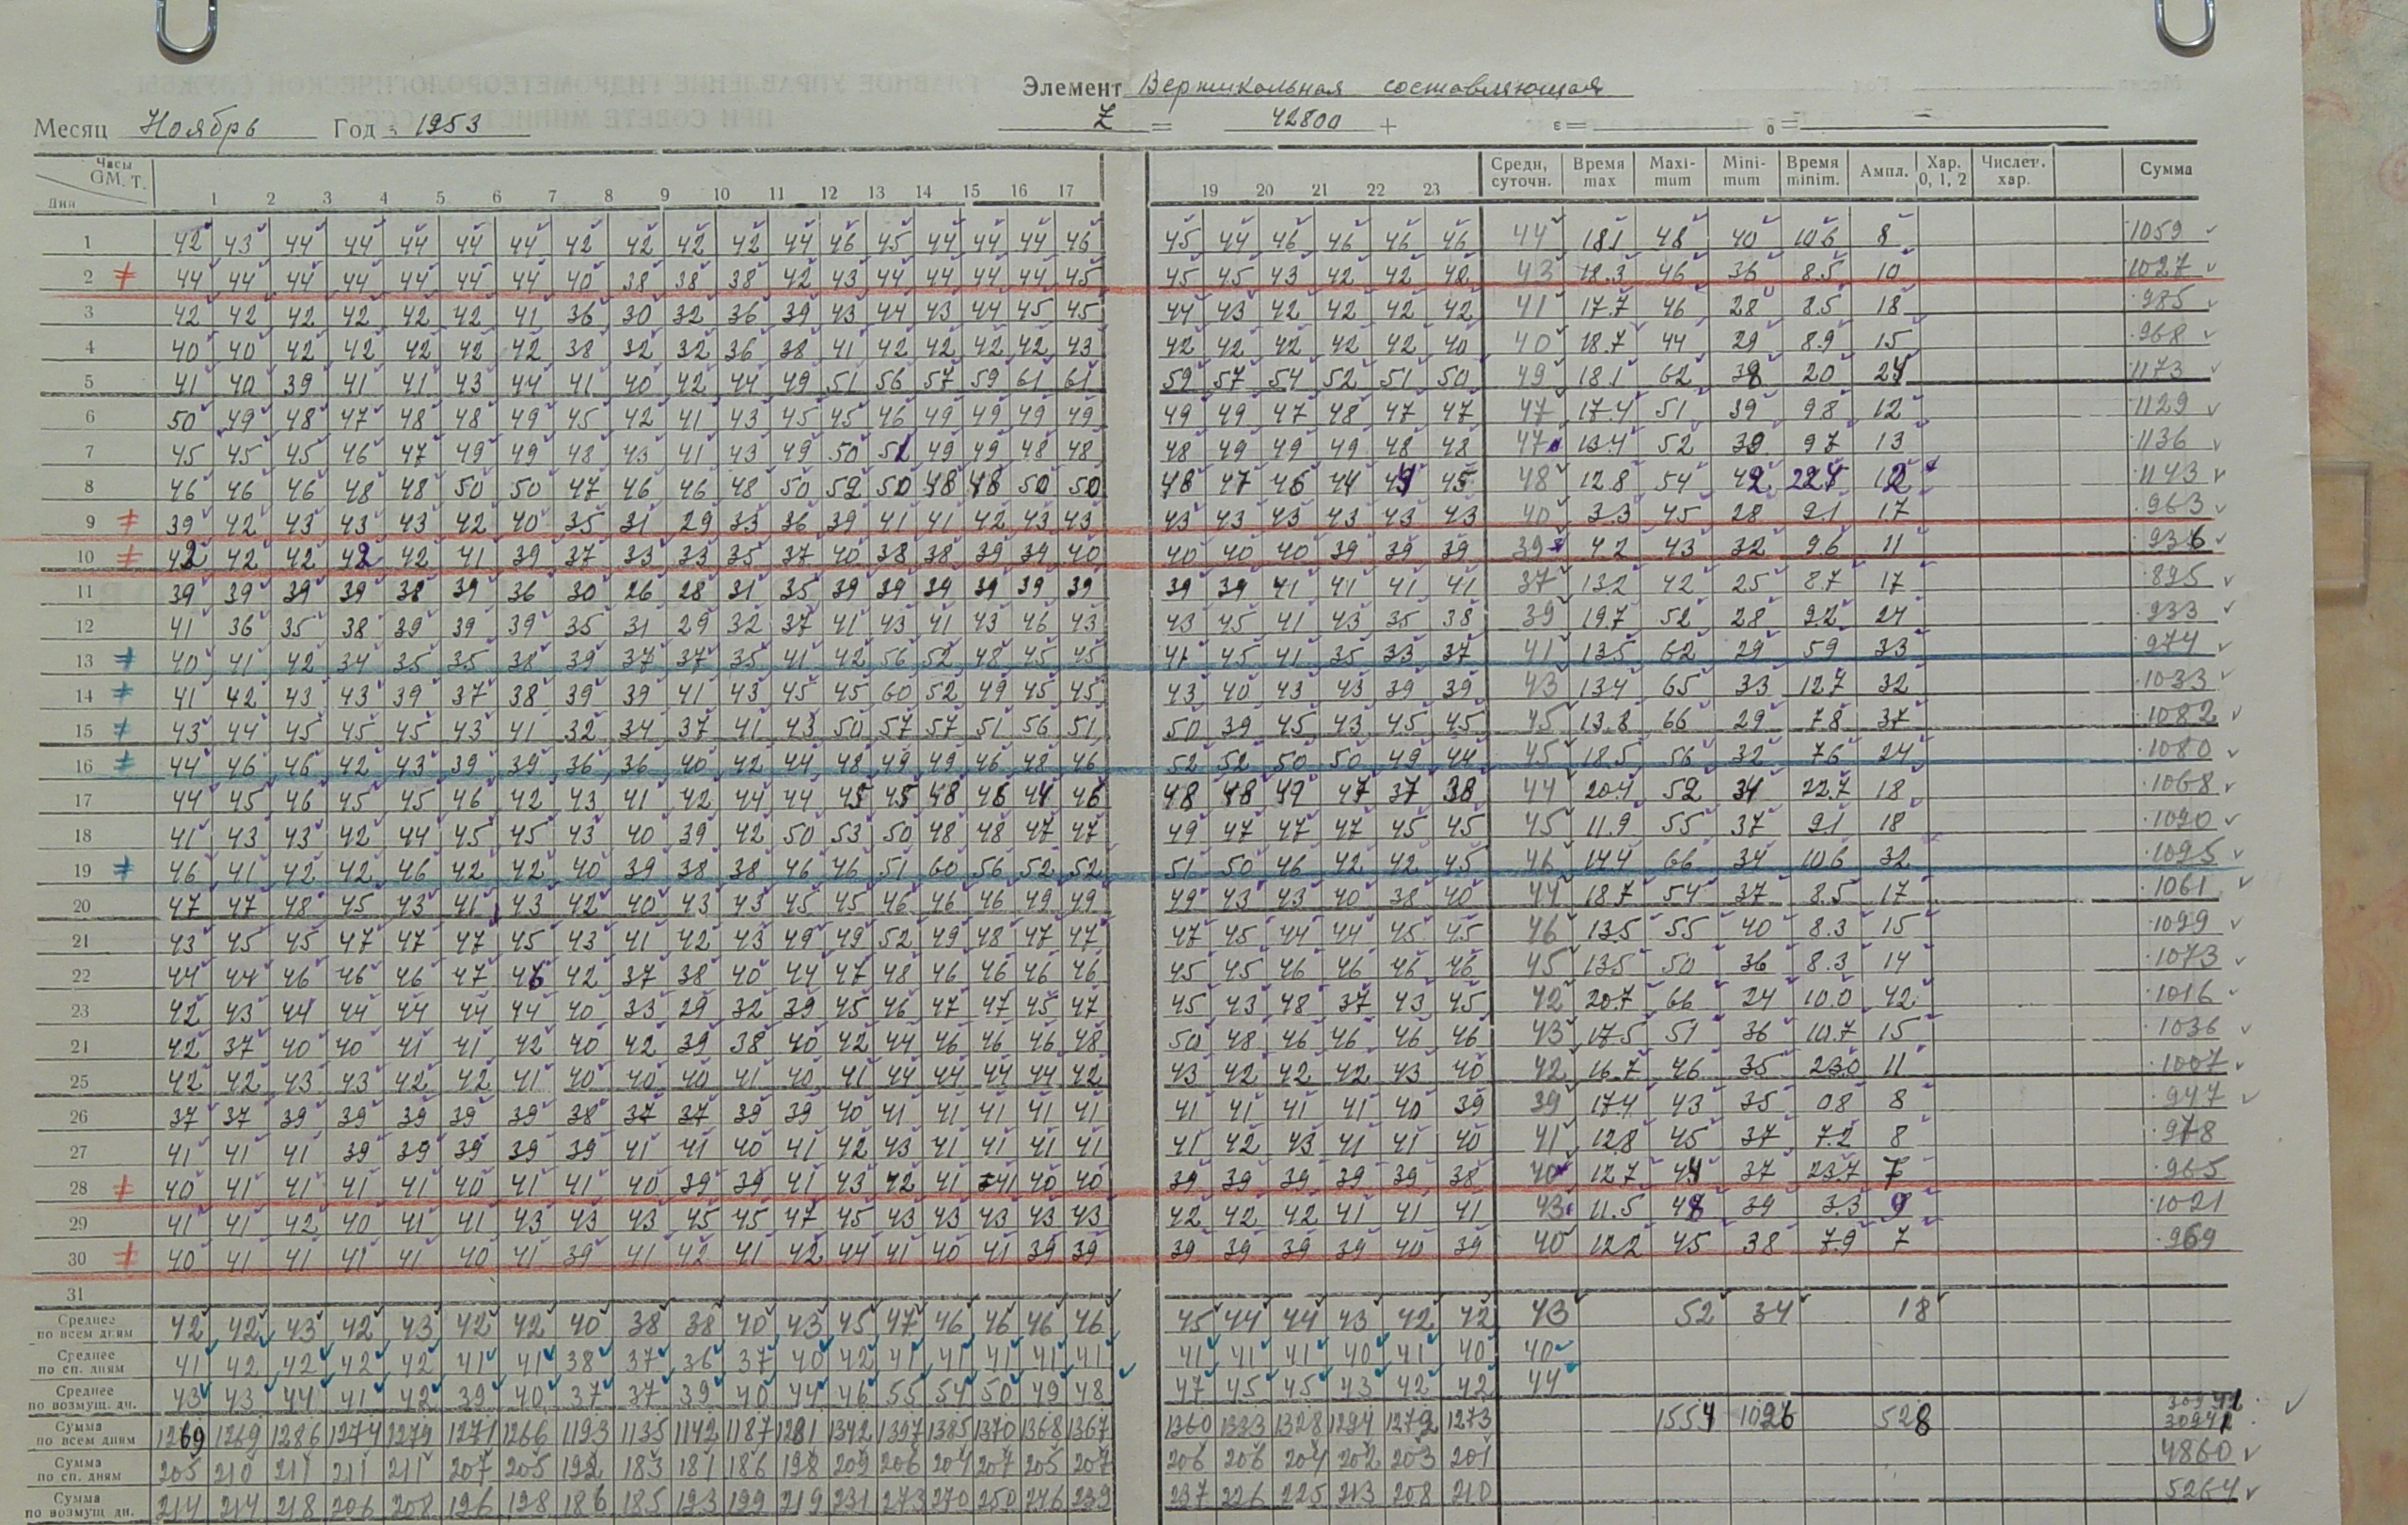 Элемент Вертикальная составляющая
Месяц Ноябрь Год 1953 Z = 42800 + ε = о =
Часы GM. T. Дни 1 2 3 4 5 6 7 8 9 10 11 12 13 14 15 16 17 19 20 21 22 23 Средн, суточн. Время max Maxi-mum Mini-mum Время minim. Ампл. Хар. 0, 1, 2 Числет. хар. Сумма
1 42 43 44 44 44 44 44 42 42 42 42 44 46 45 44 44 44 46 45 44 46 46 46 46 44 18.1 48 40 10.6 8 1059
2 44 44 44 44 44 44 44 40 38 38 38 42 43 44 44 44 44 45 45 45 43 42 42 42 43 18.3 46 36 8.5 10 1027
3 42 42 42 42 42 42 41 36 30 32 36 39 43 44 43 44 45 45 44 43 42 42 42 42 41 17.7 46 28 8.5 18 985
4 40 40 42 42 42 42 42 38 32 32 36 38 41 42 42 42 42 43 42 42 42 42 42 40 40 18.7 44 29 8.9 15 968
5 41 40 39 41 41 43 44 41 40 42 44 49 51 56 57 59 61 61 59 57 54 52 51 50 49 18.1 62 38 2.0 24 1173
6 50 49 48 47 48 48 49 45 42 41 43 45 45 46 49 49 49 49 49 49 47 48 47 47 47 17.4 51 39 9.8 12 1129
7 45 45 45 46 47 49 49 48 43 41 43 49 50 51 49 49 48 48 48 49 49 49 48 48 47 13.4 52 39 9.7 13 1136
8 46 46 46 48 48 50 50 47 46 46 48 50 52 50 48 48 50 50 48 47 46 44 44 45 48 12.8 54 42 22.4 12 1143
9 39 42 43 43 43 42 40 35 31 29 33 36 39 41 41 42 43 43 43 43 43 43 43 43 40 3.3 45 28 9.1 17 963
10 42 42 42 42 42 41 39 37 33 33 35 37 40 38 38 39 39 40 40 40 40 39 39 39 39 4.2 43 32 9.6 11 936
11 39 39 39 39 38 39 36 30 26 28 31 35 39 39 39 39 39 39 39 39 41 41 41 41 37 13.2 42 25 8.7 17 895
12 41 36 35 38 39 39 39 35 31 29 32 37 41 43 41 43 46 43 43 45 41 43 35 38 39 19.7 52 28 9.2 24 933
13 40 41 42 34 35 35 38 39 37 37 35 41 42 56 52 48 45 45 41 45 41 35 33 37 41 13.5 62 29 5.9 33 974
14 41 42 43 43 39 37 38 39 39 41 43 45 45 60 52 49 45 45 43 40 43 43 39 39 43 13.4 65 33 12.7 32 1033
15 43 44 45 45 45 43 41 32 34 37 41 43 50 57 57 51 56 51 50 39 45 43 45 45 45 13.8 66 29 7.8 37 1082
16 44 46 46 42 43 39 39 36 36 40 42 44 48 49 49 46 48 46 52 52 50 50 49 44 45 18.5 56 32 7.6 24 1080
17 44 45 46 45 45 46 42 43 41 42 44 44 45 45 48 46 44 46 48 48 49 47 37 38 44 20.4 52 34 22.7 18 1068
18 41 43 43 42 44 45 45 43 40 39 42 50 53 50 48 48 47 47 49 47 47 47 45 45 45 11.9 55 37 9.1 18 1090
19 46 41 42 42 46 42 42 40 39 38 38 46 46 51 60 56 52 52 51 50 46 42 42 45 46 14.4 66 34 10.6 32 1095
20 47 47 48 45 43 41 43 42 40 43 43 45 45 46 46 46 49 49 49 43 43 40 38 40 44 18.7 54 37 8.5 17 1061
21 43 45 45 47 47 47 45 43 41 42 43 49 49 52 49 48 47 47 47 45 44 44 45 45 46 13.5 55 40 8.3 15 1099
22 44 44 46 46 46 47 46 42 37 38 40 44 47 48 46 46 46 46 45 45 46 46 46 46 45 13.5 50 36 8.3 14 1073
23 42 43 44 44 44 44 44 40 33 29 32 39 45 46 47 47 45 47 45 43 48 37 43 45 42 20.7 66 24 10.0 42 1016
21 42 37 40 40 41 41 42 40 42 39 38 40 42 44 46 46 46 48 50 48 46 46 46 46 43 17.5 51 36 10.7 15 1036
25 42 42 43 43 42 42 41 40 40 40 41 40 41 44 44 44 44 42 43 42 42 42 43 40 42 16.7 46 35 23.0 11 1007
26 37 37 39 39 39 39 39 38 37 37 39 39 40 41 41 41 41 41 41 41 41 41 40 39 39 17.4 43 35 0.8 8 947
27 41 41 41 39 39 39 39 39 41 41 40 41 42 43 41 41 41 41 41 42 43 41 41 40 41 12.8 45 37 7.2 8 978
28 40 41 41 41 41 40 41 41 40 39 39 41 43 42 41 41 40 40 39 39 39 39 39 38 40 12.7 44 37 23.7 7 965
29 41 41 42 40 41 41 43 43 43 45 45 47 45 43 43 43 43 43 42 42 42 41 41 41 43 11.5 48 39 3.3 9 1021
30 40 41 41 41 41 40 41 39 41 42 41 42 44 41 40 41 39 39 39 39 39 39 40 39 40 12.2 45 38 7.9 7 969
31
Среднее по всем дням 42 42 43 42 43 42 42 40 38 38 40 43 45 47 46 46 46 46 45 44 44 43 42 42 43 52 34 18
Среднее по сп. дням 41 42 42 42 42 41 41 38 37 36 37 40 42 41 41 41 41 41 41 41 41 40 41 40 40
Среднее по возмущ. дн. 43 43 44 41 42 39 40 37 37 39 40 44 46 55 54 50 49 48 47 45 45 43 42 42 44
Сумма по всем дням 1269 1269 1286 1274 1279 1271 1266 1193 1135 1142 1187 1281 1342 1397 1385 1370 1368 1367 1360 1333 1328 1294 1279 1273 1554 1026 528 30942
Сумма по сп. дням 205 210 211 211 211 207 205 192 183 181 186 198 209 206 204 207 205 207 206 206 204 202 203 201 4860
Сумма по возмущ дн. 214 214 218 206 208 196 198 186 185 193 199 219 231 273 270 250 246 239 237 226 225 213 208 210 5264